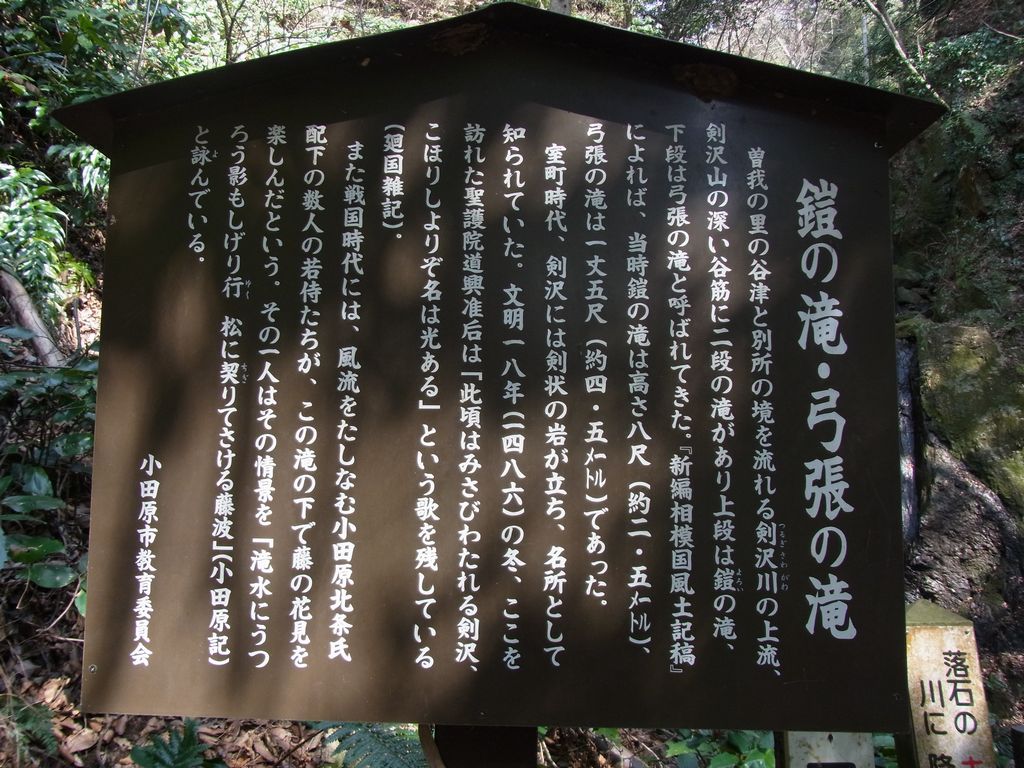 鎧の滝・弓張の滝
曽我の里の谷津と別所の境を流れる剣沢川の上流、
剣沢山の深い谷筋に二段の滝があり上段は鎧の滝、
下段は弓張の滝と呼ばれてきた。『新編相模国風土記稿』
によれば、当時鎧の滝は高さ八尺（約二・五メートル）、
弓張の滝は一丈五尺（約四・五メートル）であった。
室町時代、剣沢には剣状の岩が立ち、名所として
知られていた。文明一八年（一四八六）の冬、ここを
訪れた聖護院道興准后は「此頃はみさびわたれる剣沢、
こほりしよりぞ名は光ある」という歌を残している
（廻国雑記）。
また戦国時代には、風流をたしなむ小田原北条氏
配下の数人の若侍たちが、この滝の下で藤の花見を
楽しんだという。その一人はその情景を「滝水にうつ
ろう影もしげり行　松に契りてさける藤波」（小田原記）
と詠んでいる。
小田原市教育委員会
落石の
川に